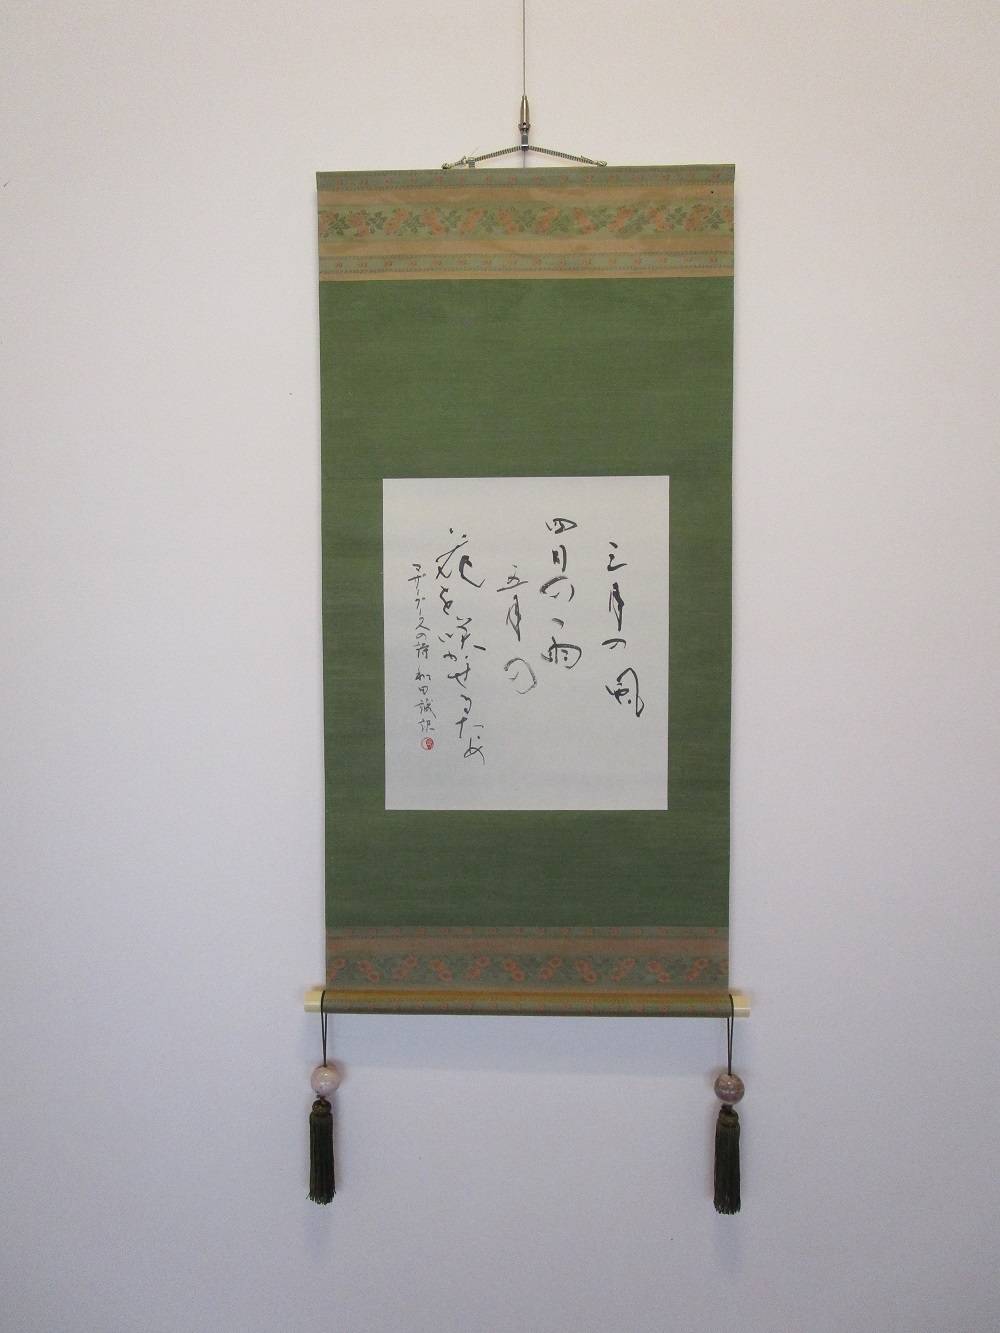 三月の風
四月の雨
五月の
花を咲かせるため
マザーグースの詩 和田誠訳